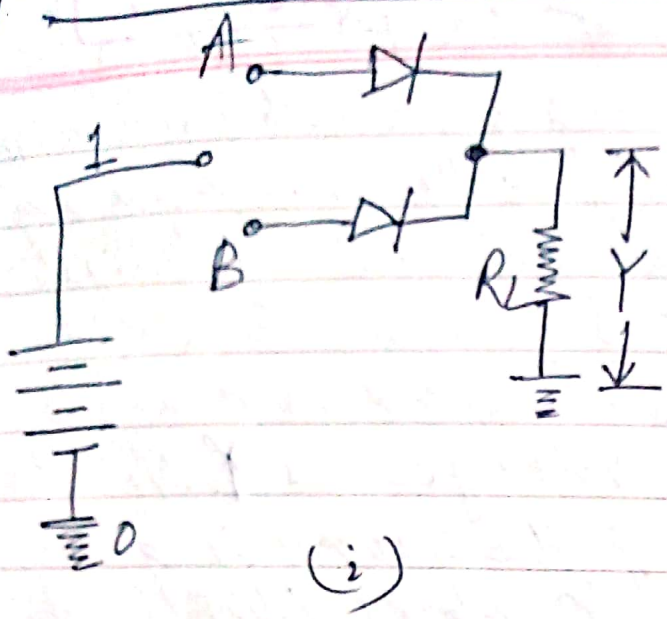 A
1
B
R_L
Y
0
(i)